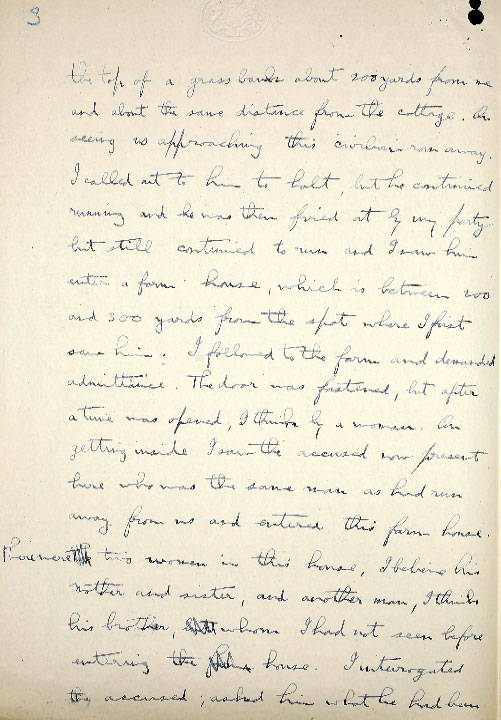 3
the top of a grass bank about 200 yards from me
and about the same distance from the cottage. On
seeing us approaching this civilian ran away.
I called out to him to halt, but he continued
running and he was then fired at by my party
but still continued to run and I saw him
enter a farm house, which is between 200
and 300 yards from the spot where I first
saw him. I followed to the farm and demanded
admittance. The door was fastened, but after
a time was opened, I think by a woman. On
getting inside I saw the accused now present
here who was the same man as had run
away from us and entered this farm house.
There were two women in this house, I believe his
mother and sister, and another man, I think
his brother, whom I had not seen before
entering the house. I interrogated
the accused; asked him what he had been